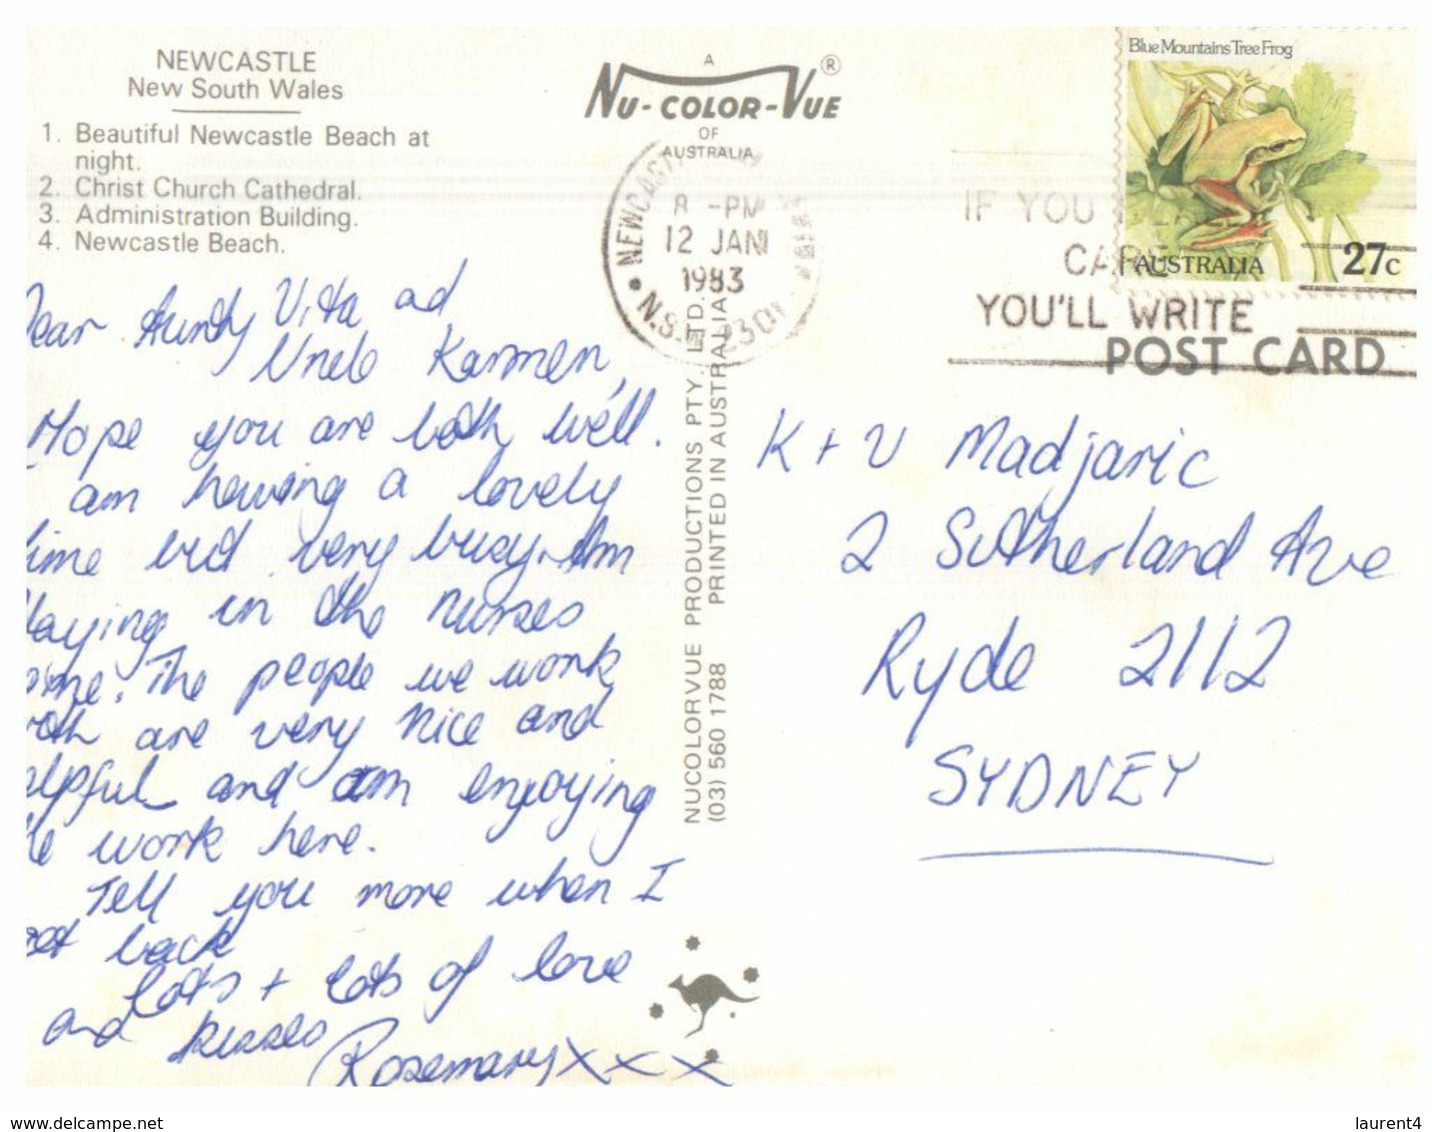 NEWCASTLE
New South Wales
1. Beautiful Newcastle Beach at
night.
2. Christ Church Cathedral.
3. Administration Building.
4. Newcastle Beach.
Dear Aunty Vita ad
Uncle Karmen,
Hope you are both well.
I am having a lovely
time but very busy. Am
staying in the nurses
home. The people we work
with are very nice and
helpful and am enjoying
the work here.
Tell you more when I
get back
Lots + lots of love
and kisses
Rosemary X X X
A
NU-COLOR-VUE ®
OF
AUSTRALIA
NEWCASTLE
8 - PM
12 JAN
1983
N.S.W. 2301
NUCOLORVUE PRODUCTIONS PTY. LTD.
(03) 560 1788 PRINTED IN AUSTRALIA
Blue Mountains Tree Frog
AUSTRALIA 27c
IF YOU
CARE
YOU'LL WRITE
POST CARD
K + V Madjaric
2 Sutherland Ave
Ryde 2112
SYDNEY
www.delcampe.net
laurent4